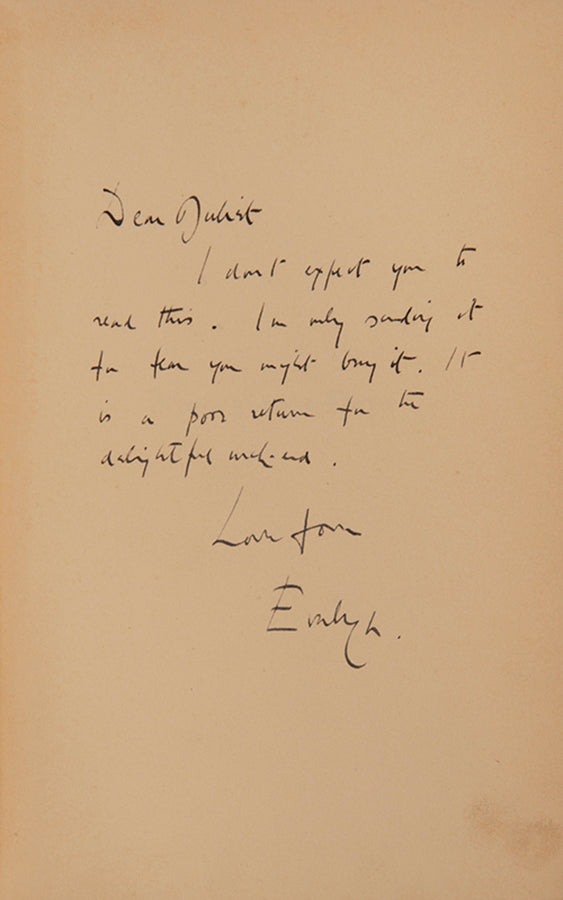 Dear Juliet
I don't expect you to
read this. I'm only sending it
for fear you might buy it. It
is a poor return for the
delightful week-end.
Love from
Evelyn.